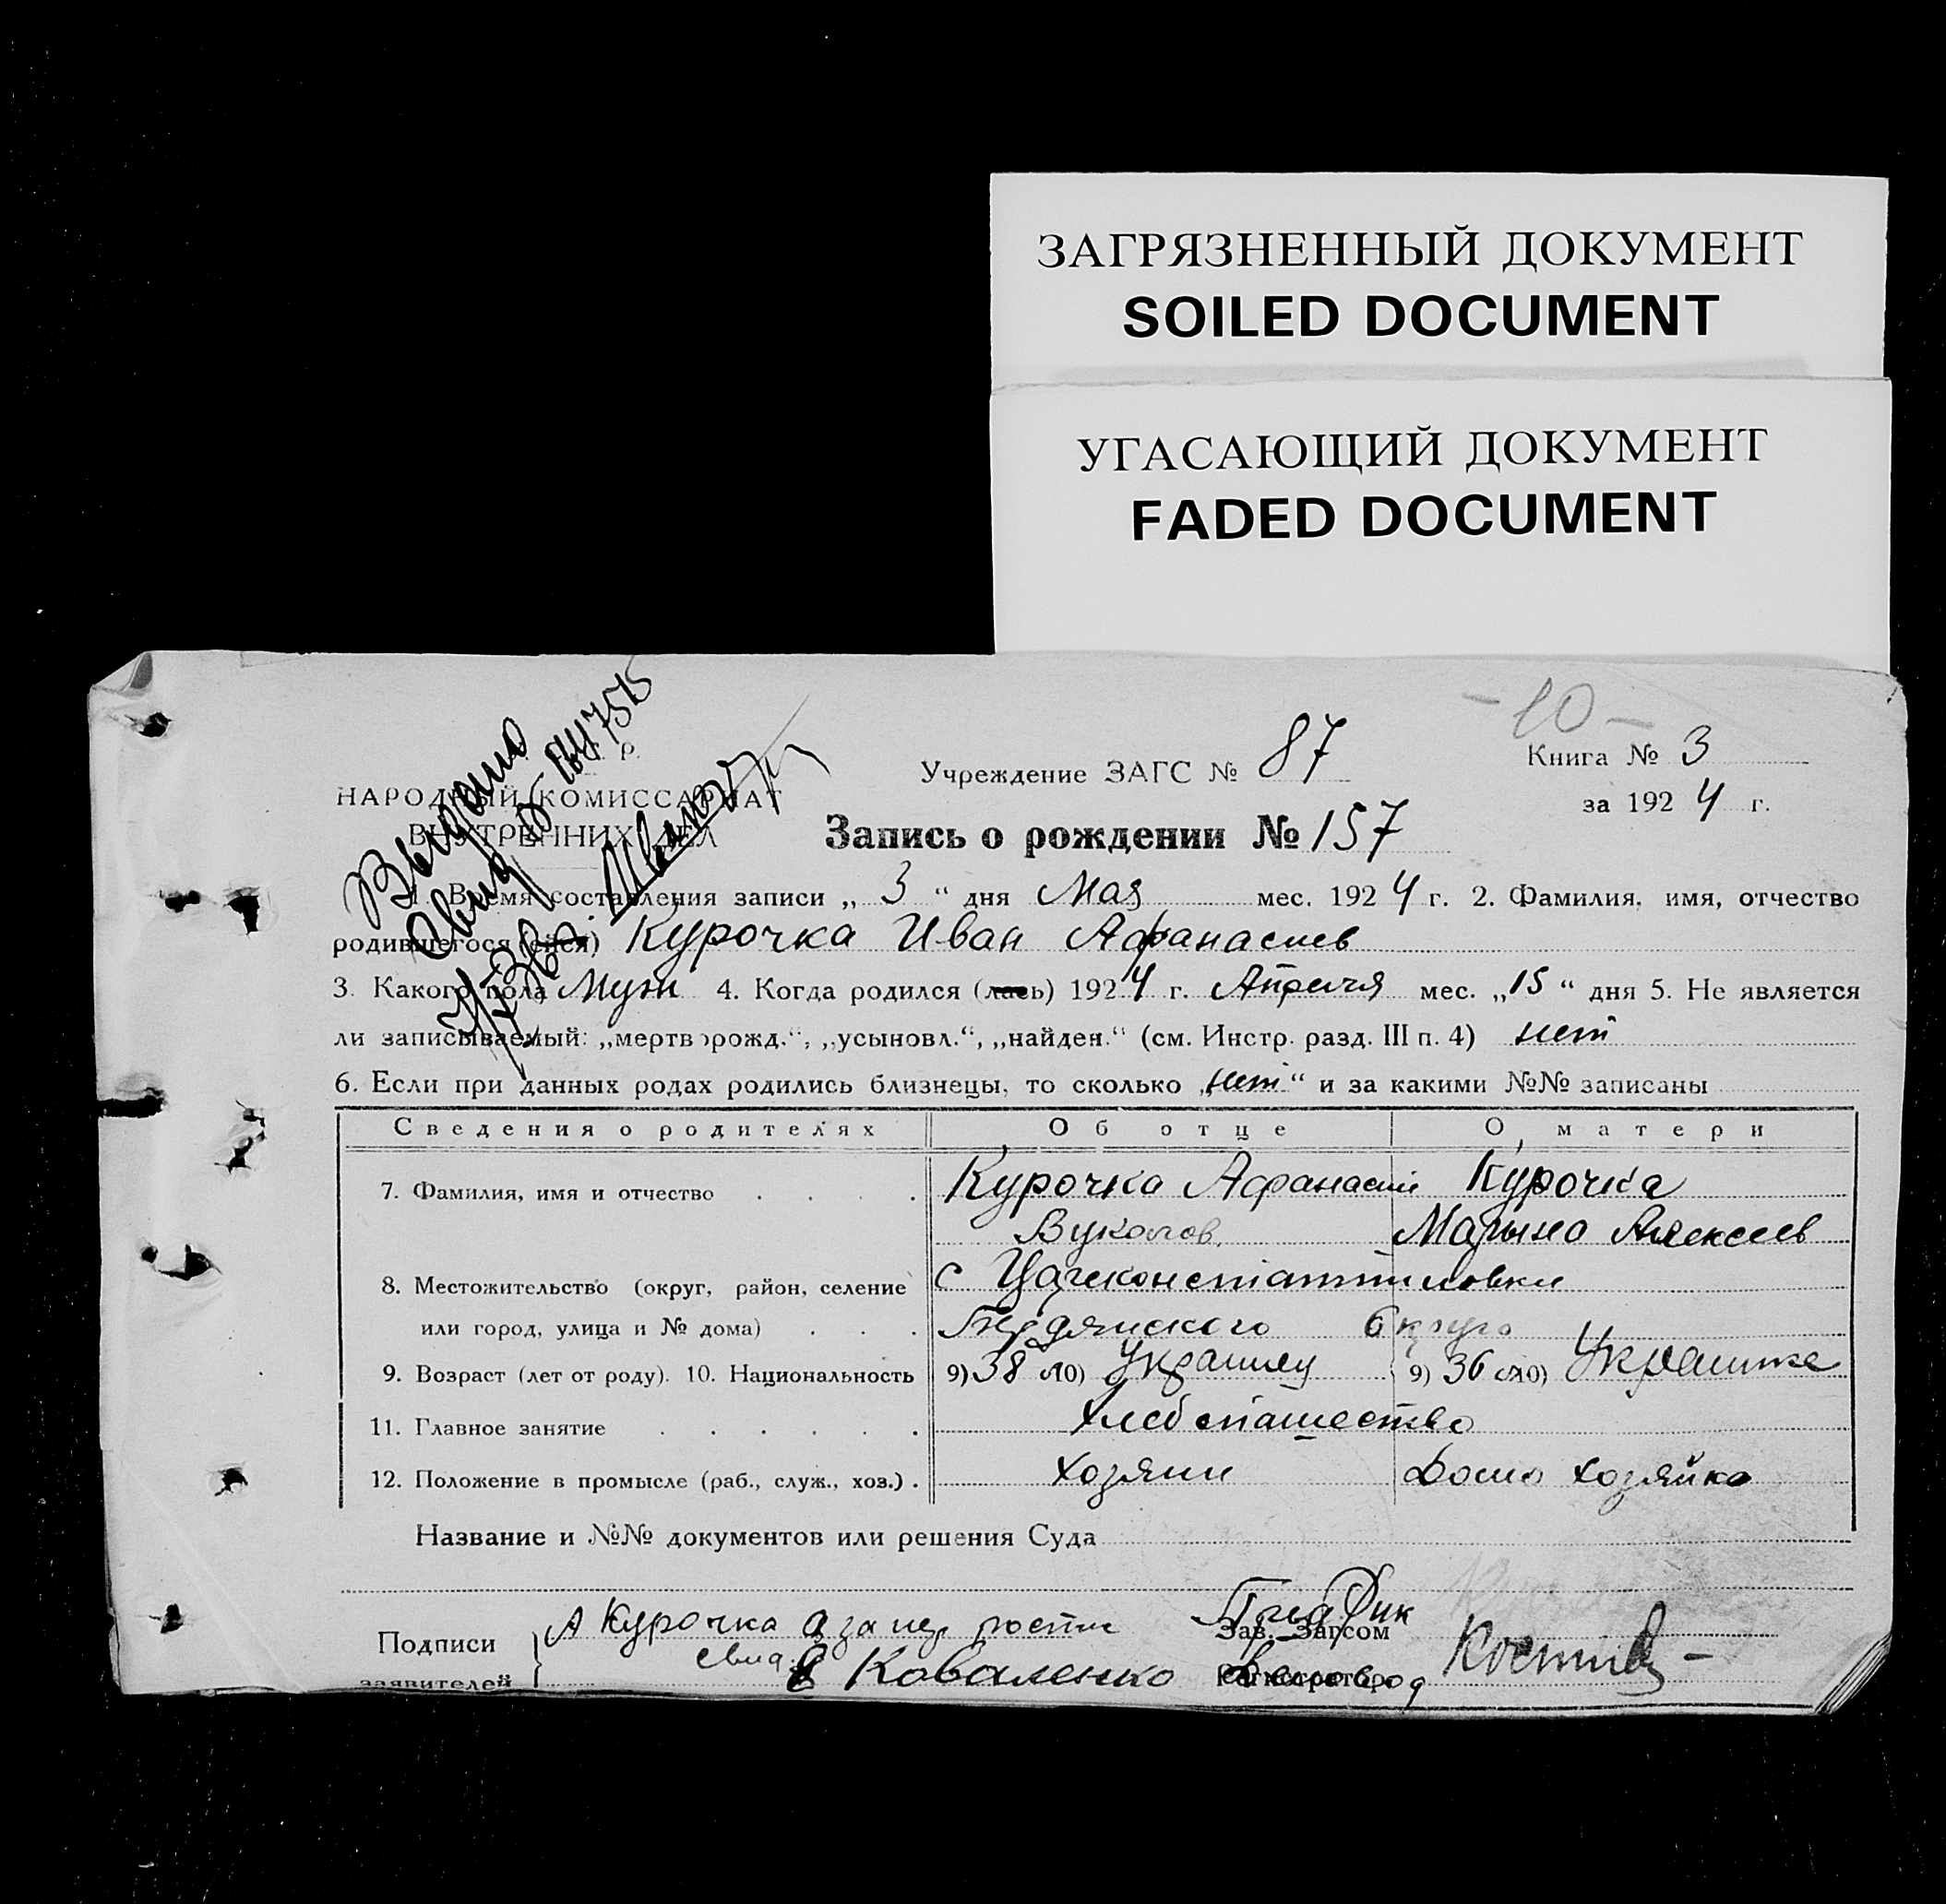 ЗАГРЯЗНЕННЫЙ ДОКУМЕНТ
SOILED DOCUMENT
УГАСАЮЩИЙ ДОКУМЕНТ
FADED DOCUMENT
-10-
Книга № 3
за 1924 г.
Учреждение ЗАГС № 87
НАРОДНЫЙ КОМИССАРИАТ
ВНУТРЕННИХ ДЕЛ
Выдано
Запись о рождении № 157
1. Время составления записи „ 3 “ дня Мая мес. 1924 г. 2. Фамилия, имя, отчество
родившегося (ейся) Курочка Иван Афанасиев
3. Какого пола Муж 4. Когда родился (лась) 1924 г. Апреля мес. „15“ дня 5. Не является
ли записываемый: „мертворожд.“, „усыновл.“, „найден.“ (см. Инстр. разд. III п. 4) нет
6. Если при данных родах родились близнецы, то сколько „нет“ и за какими №№ записаны
Сведения о родителях Об отце О матери
7. Фамилия, имя и отчество . . . . Курочка Афанасий Курочка
Вуколов. Марына Алексеев
8. Местожительство (округ, район, селение с Цареконстантиновки
или город, улица и № дома) . . . округа
9. Возраст (лет от роду). 10. Национальность 9) 38 л 10) Украинец 9) 36 л 10) Украинка
11. Главное занятие . . . . . . Хлебопашество
12. Положение в промысле (раб., служ., хоз.) . хозяин Домо хозяйка
Название и №№ документов или решения Суда
Подписи А Курочка Зав. Загсом
заявителей Коваленко Регистратор